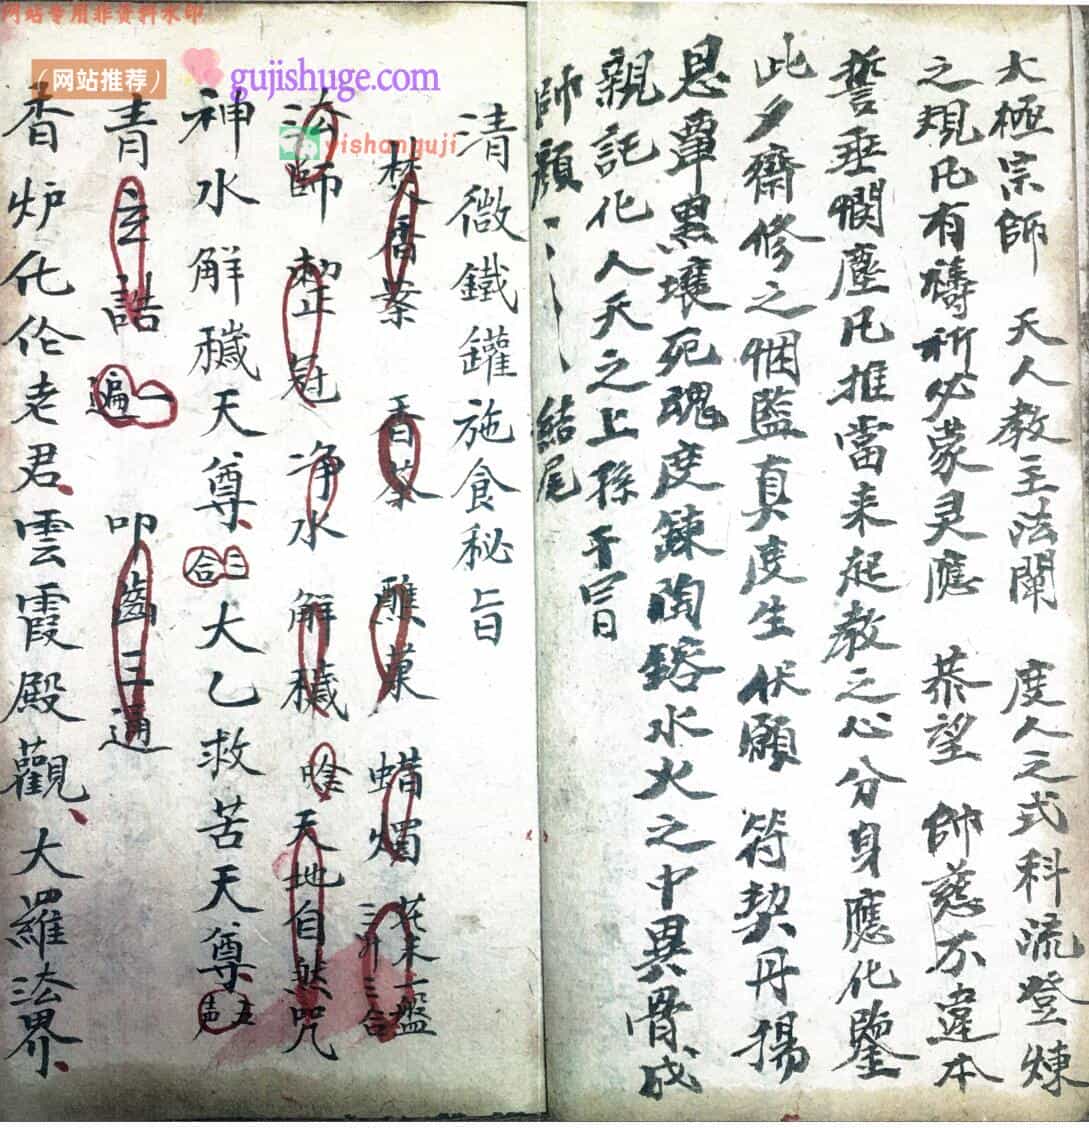 网站专用非资料水印
（网站推荐）
gujishuge.com
yishanguji
太極宗師 天人教主法闡 度人之式科流登煉
之規凡有禱祈必蒙灵應 恭望 帥慈不違本
誓垂憫塵凡推當来起教之心分身應化鑒
此夕齋修之悃監真度生伏願 符契丹揚
恩覃黑壤死魂度鍊陶鎔水火之中異骨成
親託化人天之上孫
帥顏 結尾
清微鐵罐施食秘旨
焚香 香茶 醮菓 蜡燭 花米一盤 三升三合
法師 整冠 净水 解穢 唸 天地自然咒
神水解穢天尊 三合 大乙救苦天尊 五声
青玄誥 一遍 叩齒三通
香炉化伦老君雲霞殿觀大羅法界